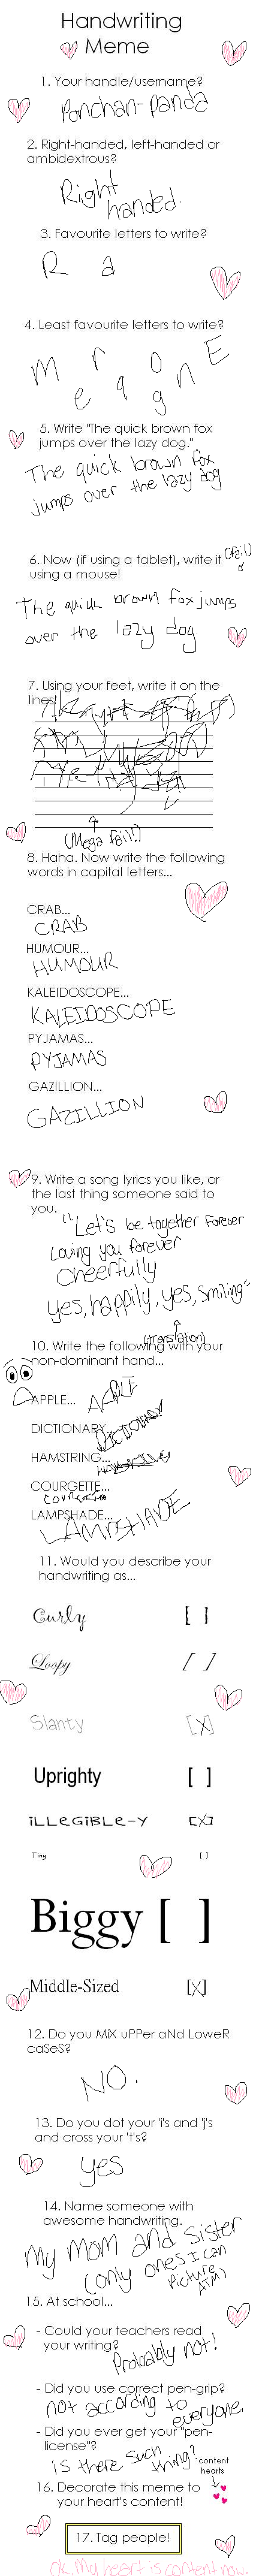 Handwriting
Meme
1. Your handle/username?
Ponchan-Panda
2. Right-handed, left-handed or
ambidextrous?
Right
handed.
3. Favourite letters to write?
R a
4. Least favourite letters to write?
m r o E
e q g n
5. Write "The quick brown fox
jumps over the lazy dog."
The quick brown fox
jumps over the lazy dog
6. Now (if using a tablet), write it
using a mouse!
(fail)
The quick brown fox jumps
over the lazy dog.
7. Using your feet, write it on the
lines!
(Mega fail!)
8. Haha. Now write the following
words in capital letters...
CRAB...
CRAB
HUMOUR...
HUMOUR
KALEIDOSCOPE...
KALEIDOSCOPE
PYJAMAS...
PYJAMAS
GAZILLION...
GAZILLION
9. Write a song lyrics you like, or
the last thing someone said to
you.
"Let's be together forever
Loving you forever
cheerfully
yes, happily, yes, smiling"
(translation)
10. Write the following with your
non-dominant hand...
APPLE... APPLE
DICTIONARY... DICTIONARY
HAMSTRING...
COURGETTE...
LAMPSHADE...
LAMPSHADE
11. Would you describe your
handwriting as...
Curly [ ]
Loopy [ ]
Slanty [X]
Uprighty [ ]
iLLeGiBLe-Y [X]
Tiny [ ]
Biggy [ ]
Middle-Sized [X]
12. Do you MiX uPPer aNd LoweR
caSeS?
NO.
13. Do you dot your 'i's and 'j's
and cross your 't's?
yes
14. Name someone with
awesome handwriting.
My Mom and Sister
(only ones I can
picture
ATM)
15. At school...
- Could your teachers read
your writing?
Probably not!
- Did you use correct pen-grip?
not according to
everyone.
- Did you ever get your "pen-
license"?
is there such
thing?
*content
hearts
16. Decorate this meme to
your heart's content!
17. Tag people!
Ok. My heart is content now.